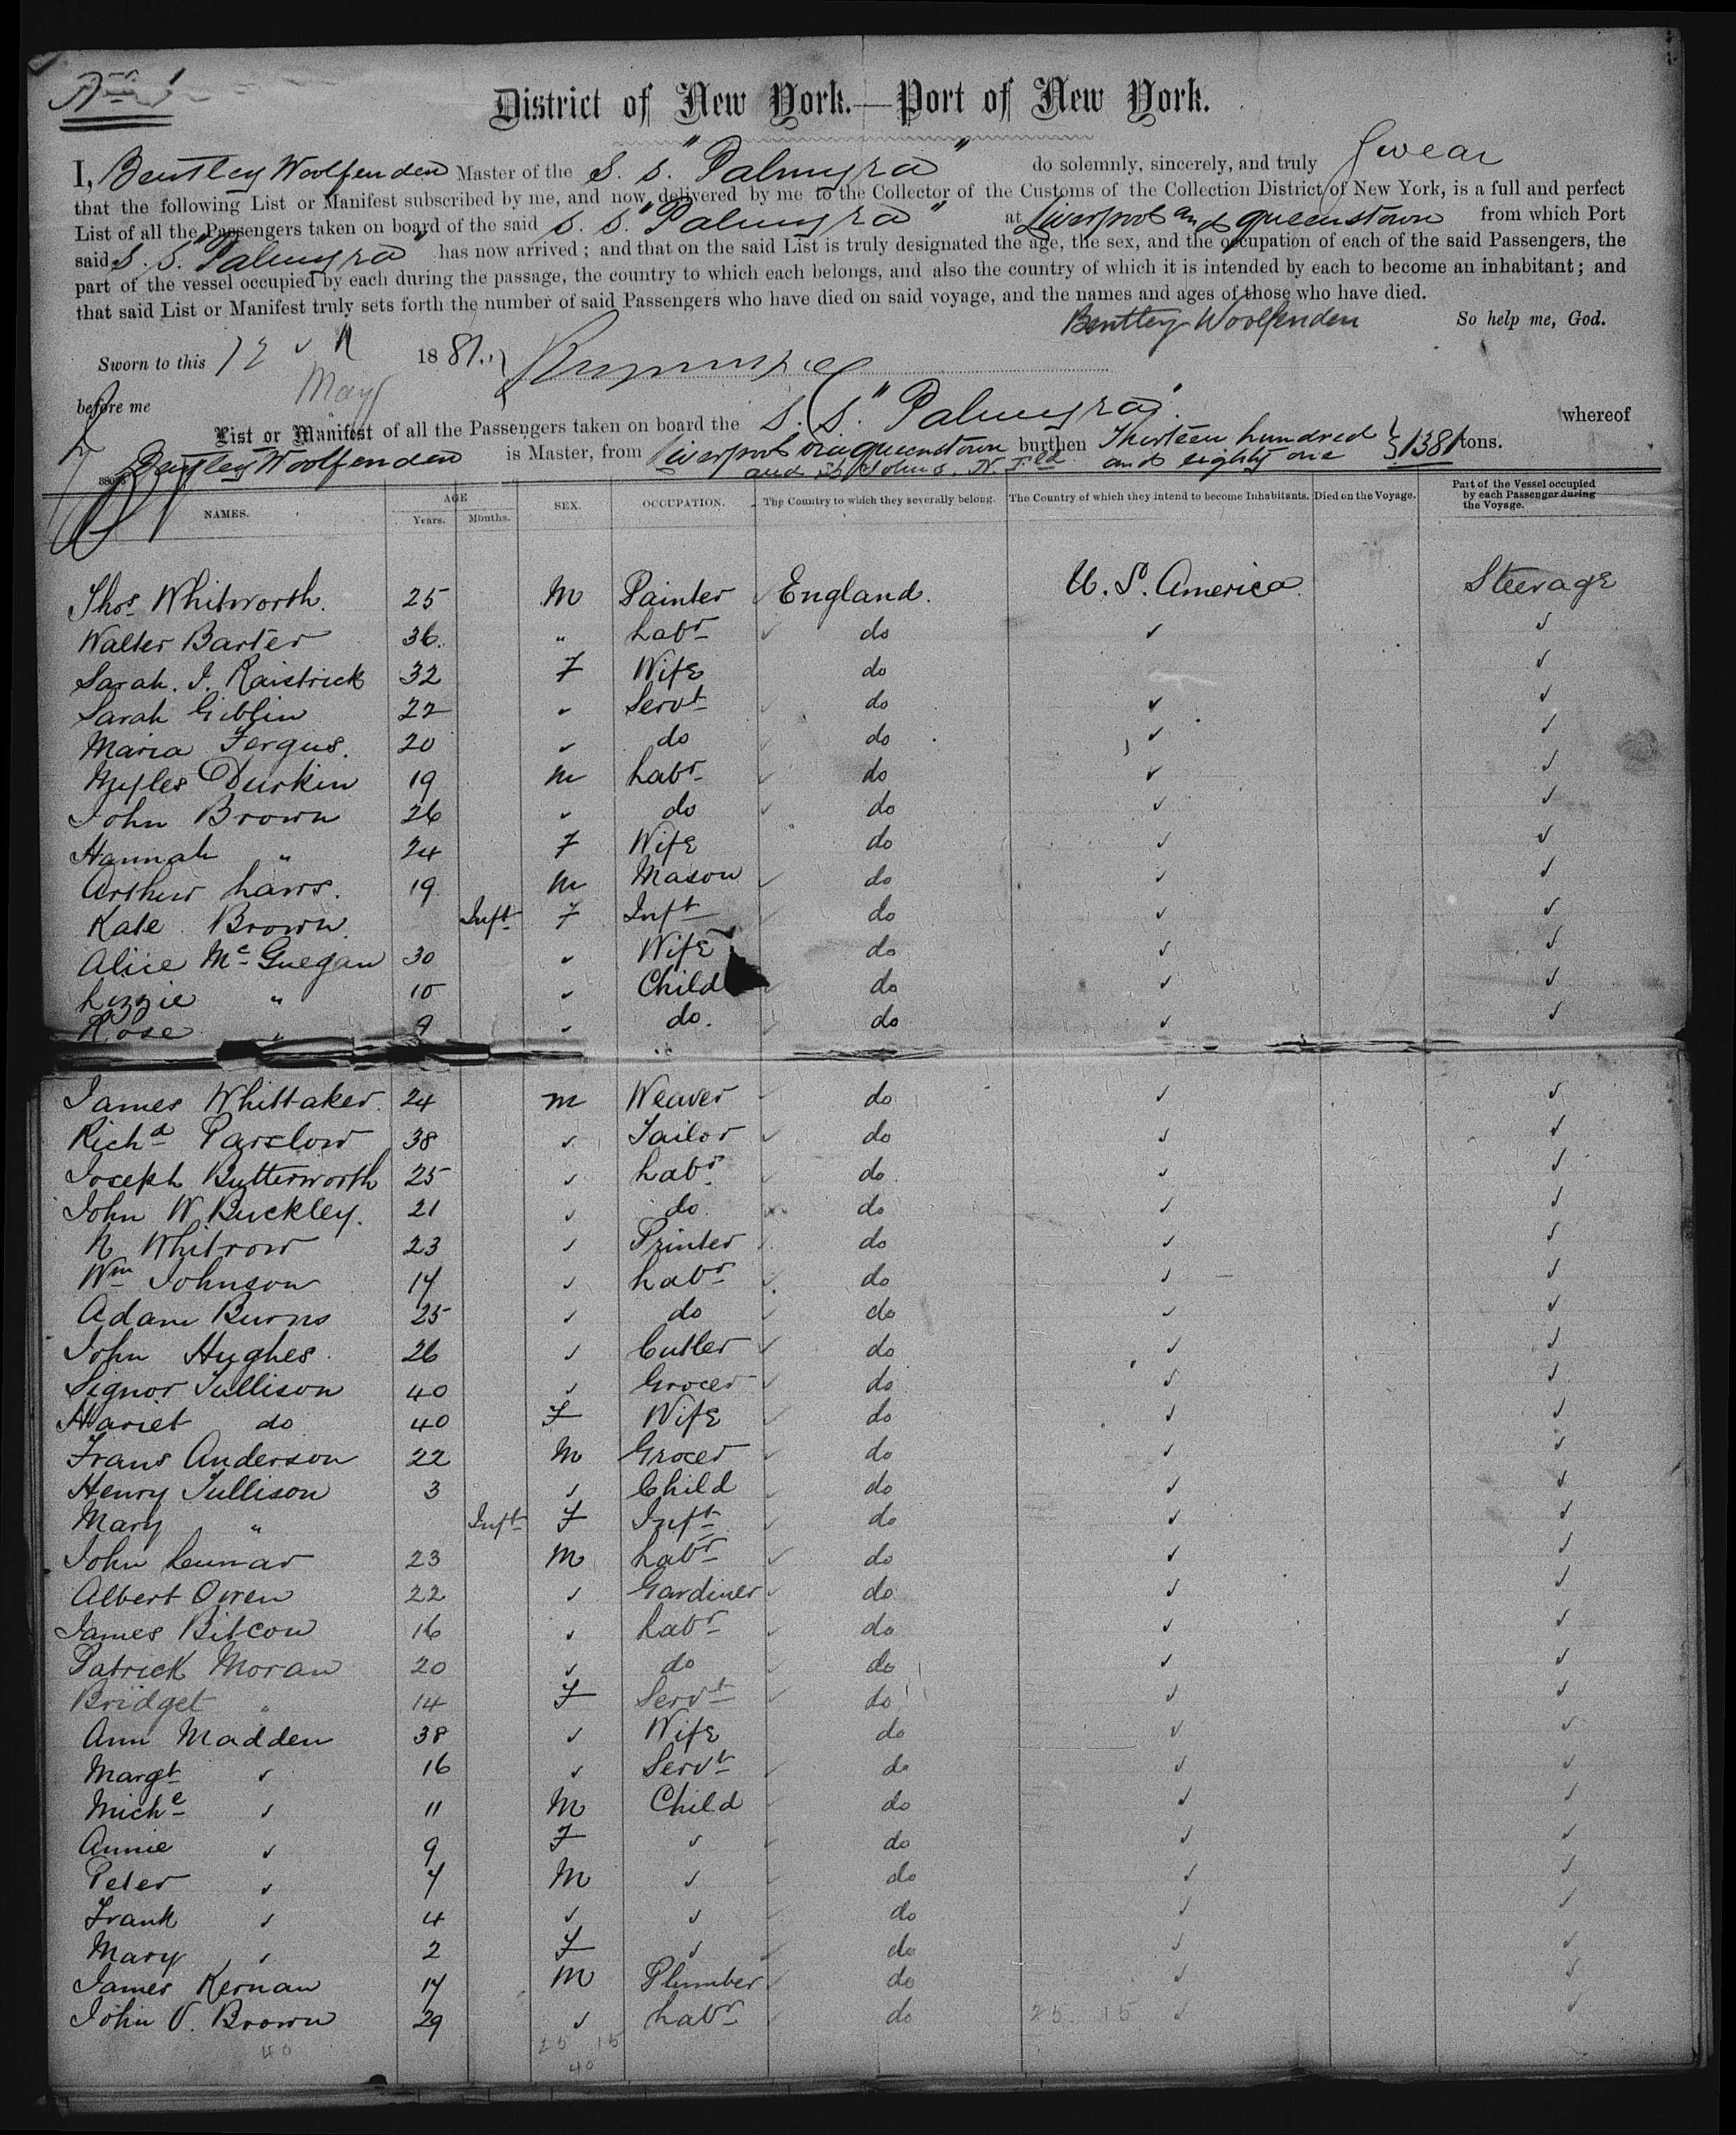 No 1
District of New York.—Port of New York.
I, Bentley Woolfenden Master of the S. S. "Palmyra" do solemnly, sincerely, and truly Swear
that the following List or Manifest subscribed by me, and now delivered by me to the Collector of the Customs of the Collection District of New York, is a full and perfect
List of all the Passengers taken on board of the said S. S. "Palmyra" at Liverpool and Queenstown from which Port
said S. S. "Palmyra" has now arrived; and that on the said List is truly designated the age, the sex, and the occupation of each of the said Passengers, the
part of the vessel occupied by each during the passage, the country to which each belongs, and also the country of which it is intended by each to become an inhabitant; and
that said List or Manifest truly sets forth the number of said Passengers who have died on said voyage, and the names and ages of those who have died.
Bentley Woolfenden So help me, God.
Sworn to this 12 May 1881
before me
List or Manifest of all the Passengers taken on board the S. S. "Palmyra". whereof
Bentley Woolfenden is Master, from Liverpool via Queenstown burthen Thirteen hundred 1381 tons.
and St Johns. N. Fld and eighty one
NAMES. AGE Years. Months. SEX. OCCUPATION. The Country to which they severally belong. The Country of which they intend to become Inhabitants. Died on the Voyage. Part of the Vessel occupied by each Passenger during the Voyage.
Thos Whitworth. 25 M Painter England. U. S. America Steerage
Walter Barter 36 " Labr do ✓ ✓
Sarah. J. Raistrick 32 F Wife do ✓
Sarah Giblin 22 ✓ Servt do ✓ ✓
Maria Fergus. 20 ✓ do do ✓ ✓
Myles Durkin 19 M Labr do ✓ ✓
John Brown 26 ✓ do do ✓ ✓
Hannah " 24 F Wife do ✓ ✓
Arthur Laws. 19 M Mason do ✓ ✓
Kate Brown. Inft F Inft do ✓ ✓
Alice Mc Guegan 30 ✓ Wife do ✓ ✓
Lizzie " 10 ✓ Child do ✓ ✓
Rose " 9 ✓ do. do ✓ ✓
James Whittaker. 24 M Weaver do ✓ ✓
Richd Parslow 38 ✓ Tailor do ✓ ✓
Joseph Butterworth 25 ✓ Labr do ✓ ✓
John W Buckley. 21 ✓ do do ✓ ✓
N Whitrow 23 ✓ Printer do ✓ ✓
Wm Johnson 17 ✓ Labr do ✓ ✓
Adam Burns 25 ✓ do do ✓ ✓
John Hughes. 26 ✓ Cutler do ✓ ✓
Signor Tullison 40 ✓ Grocer do ✓ ✓
Hariet do 40 F Wife do ✓ ✓
Frans Anderson 22 M Grocer do ✓ ✓
Henry Tullison 3 ✓ Child do ✓ ✓
Mary " Inft F Inft do ✓ ✓
John Lennar 23 M Labr do ✓ ✓
Albert Owen 22 ✓ Gardiner do ✓ ✓
James Bitcon 16 ✓ Labr do ✓ ✓
Patrick Moran 20 ✓ do do ✓ ✓
Bridget " 14 F Servt do ✓ ✓
Ann Madden 38 ✓ Wife do ✓ ✓
Margt ✓ 16 ✓ Servt do ✓ ✓
Michl ✓ 11 M Child do ✓ ✓
Annie ✓ 9 F ✓ do ✓ ✓
Peter ✓ 7 M ✓ do ✓ ✓
Frank ✓ 4 ✓ ✓ do ✓ ✓
Mary ✓ 2 F ✓ do ✓ ✓
James Kernan 17 M Plumber do ✓ ✓
John V. Brown 29 ✓ Labr do 25 15 ✓ ✓
40 25 15
40